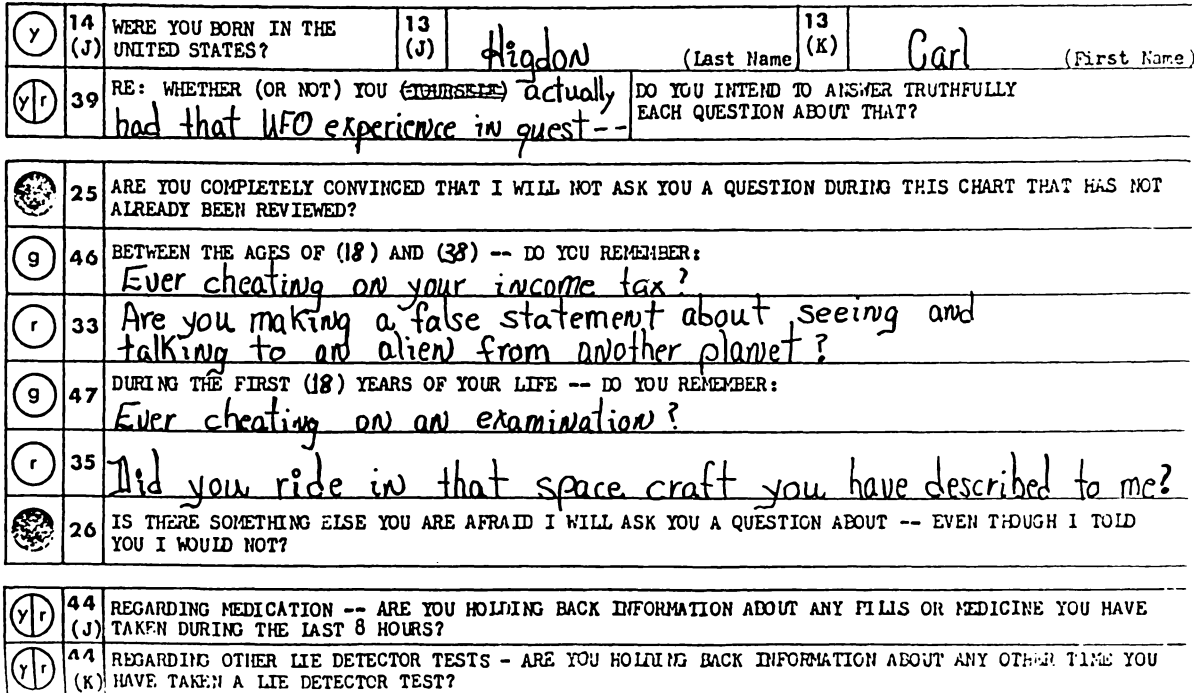 y 14 (J) WERE YOU BORN IN THE UNITED STATES? 13 (J) Higdon (Last Name) 13 (K) Carl (First Name)
y r 39 RE: WHETHER (OR NOT) YOU (YOURSELF) actually
had that UFO experience in quest--
DO YOU INTEND TO ANSWER TRUTHFULLY
EACH QUESTION ABOUT THAT?
25 ARE YOU COMPLETELY CONVINCED THAT I WILL NOT ASK YOU A QUESTION DURING THIS CHART THAT HAS NOT
ALREADY BEEN REVIEWED?
g 46 BETWEEN THE AGES OF (18) AND (38) -- DO YOU REMEMBER:
Ever cheating on your income tax?
r 33 Are you making a false statement about seeing and
talking to an alien from another planet?
g 47 DURING THE FIRST (18) YEARS OF YOUR LIFE -- DO YOU REMEMBER:
Ever cheating on an examination?
r 35 Did you ride in that space craft you have described to me?
26 IS THERE SOMETHING ELSE YOU ARE AFRAID I WILL ASK YOU A QUESTION ABOUT -- EVEN THOUGH I TOLD
YOU I WOULD NOT?
y r 44 (J) REGARDING MEDICATION -- ARE YOU HOLDING BACK INFORMATION ABOUT ANY PILLS OR MEDICINE YOU HAVE
TAKEN DURING THE LAST 8 HOURS?
y r 44 (K) REGARDING OTHER LIE DETECTOR TESTS - ARE YOU HOLDING BACK INFORMATION ABOUT ANY OTHER TIME YOU
HAVE TAKEN A LIE DETECTOR TEST?